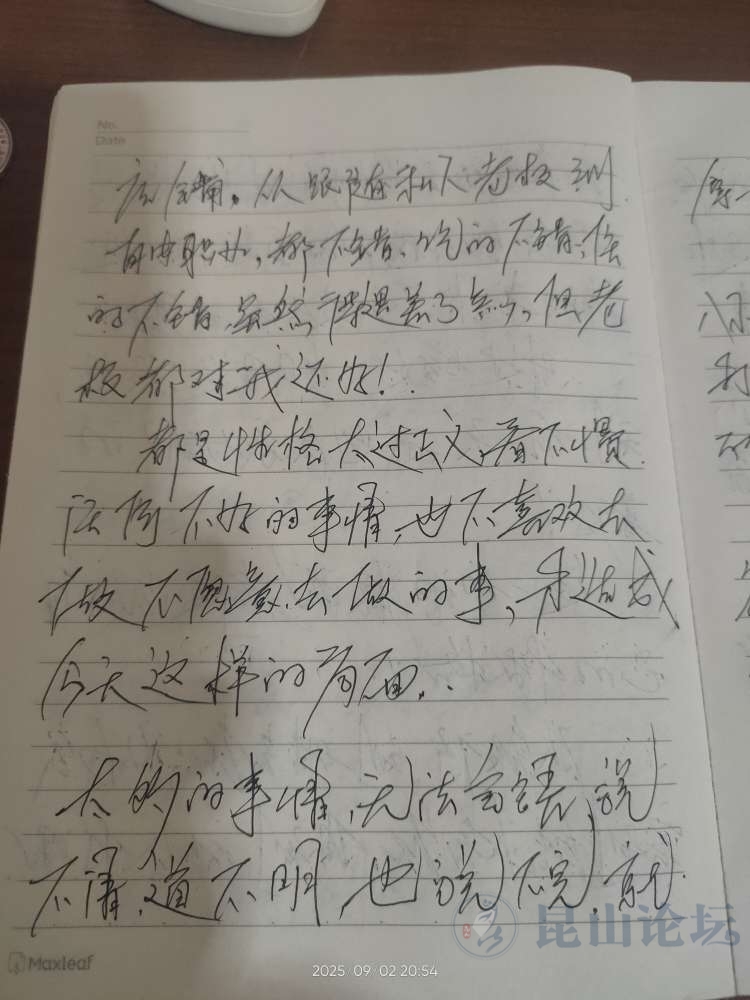 No.
Date
店铺。从跟随私人老板到
自由职业,都不错、吃的不错,住
的不错,虽然待遇差了点,但老
板都对我还好!
都是性格太过正义,看不惯
法 不好的事情,也不喜欢去
做不愿意去做的事,才造成
今天这样的局面..
太多的事情,无法言语,说
不清,道不明,也说不完,就
Maxleaf
2025 09 02 20:54
昆山论坛